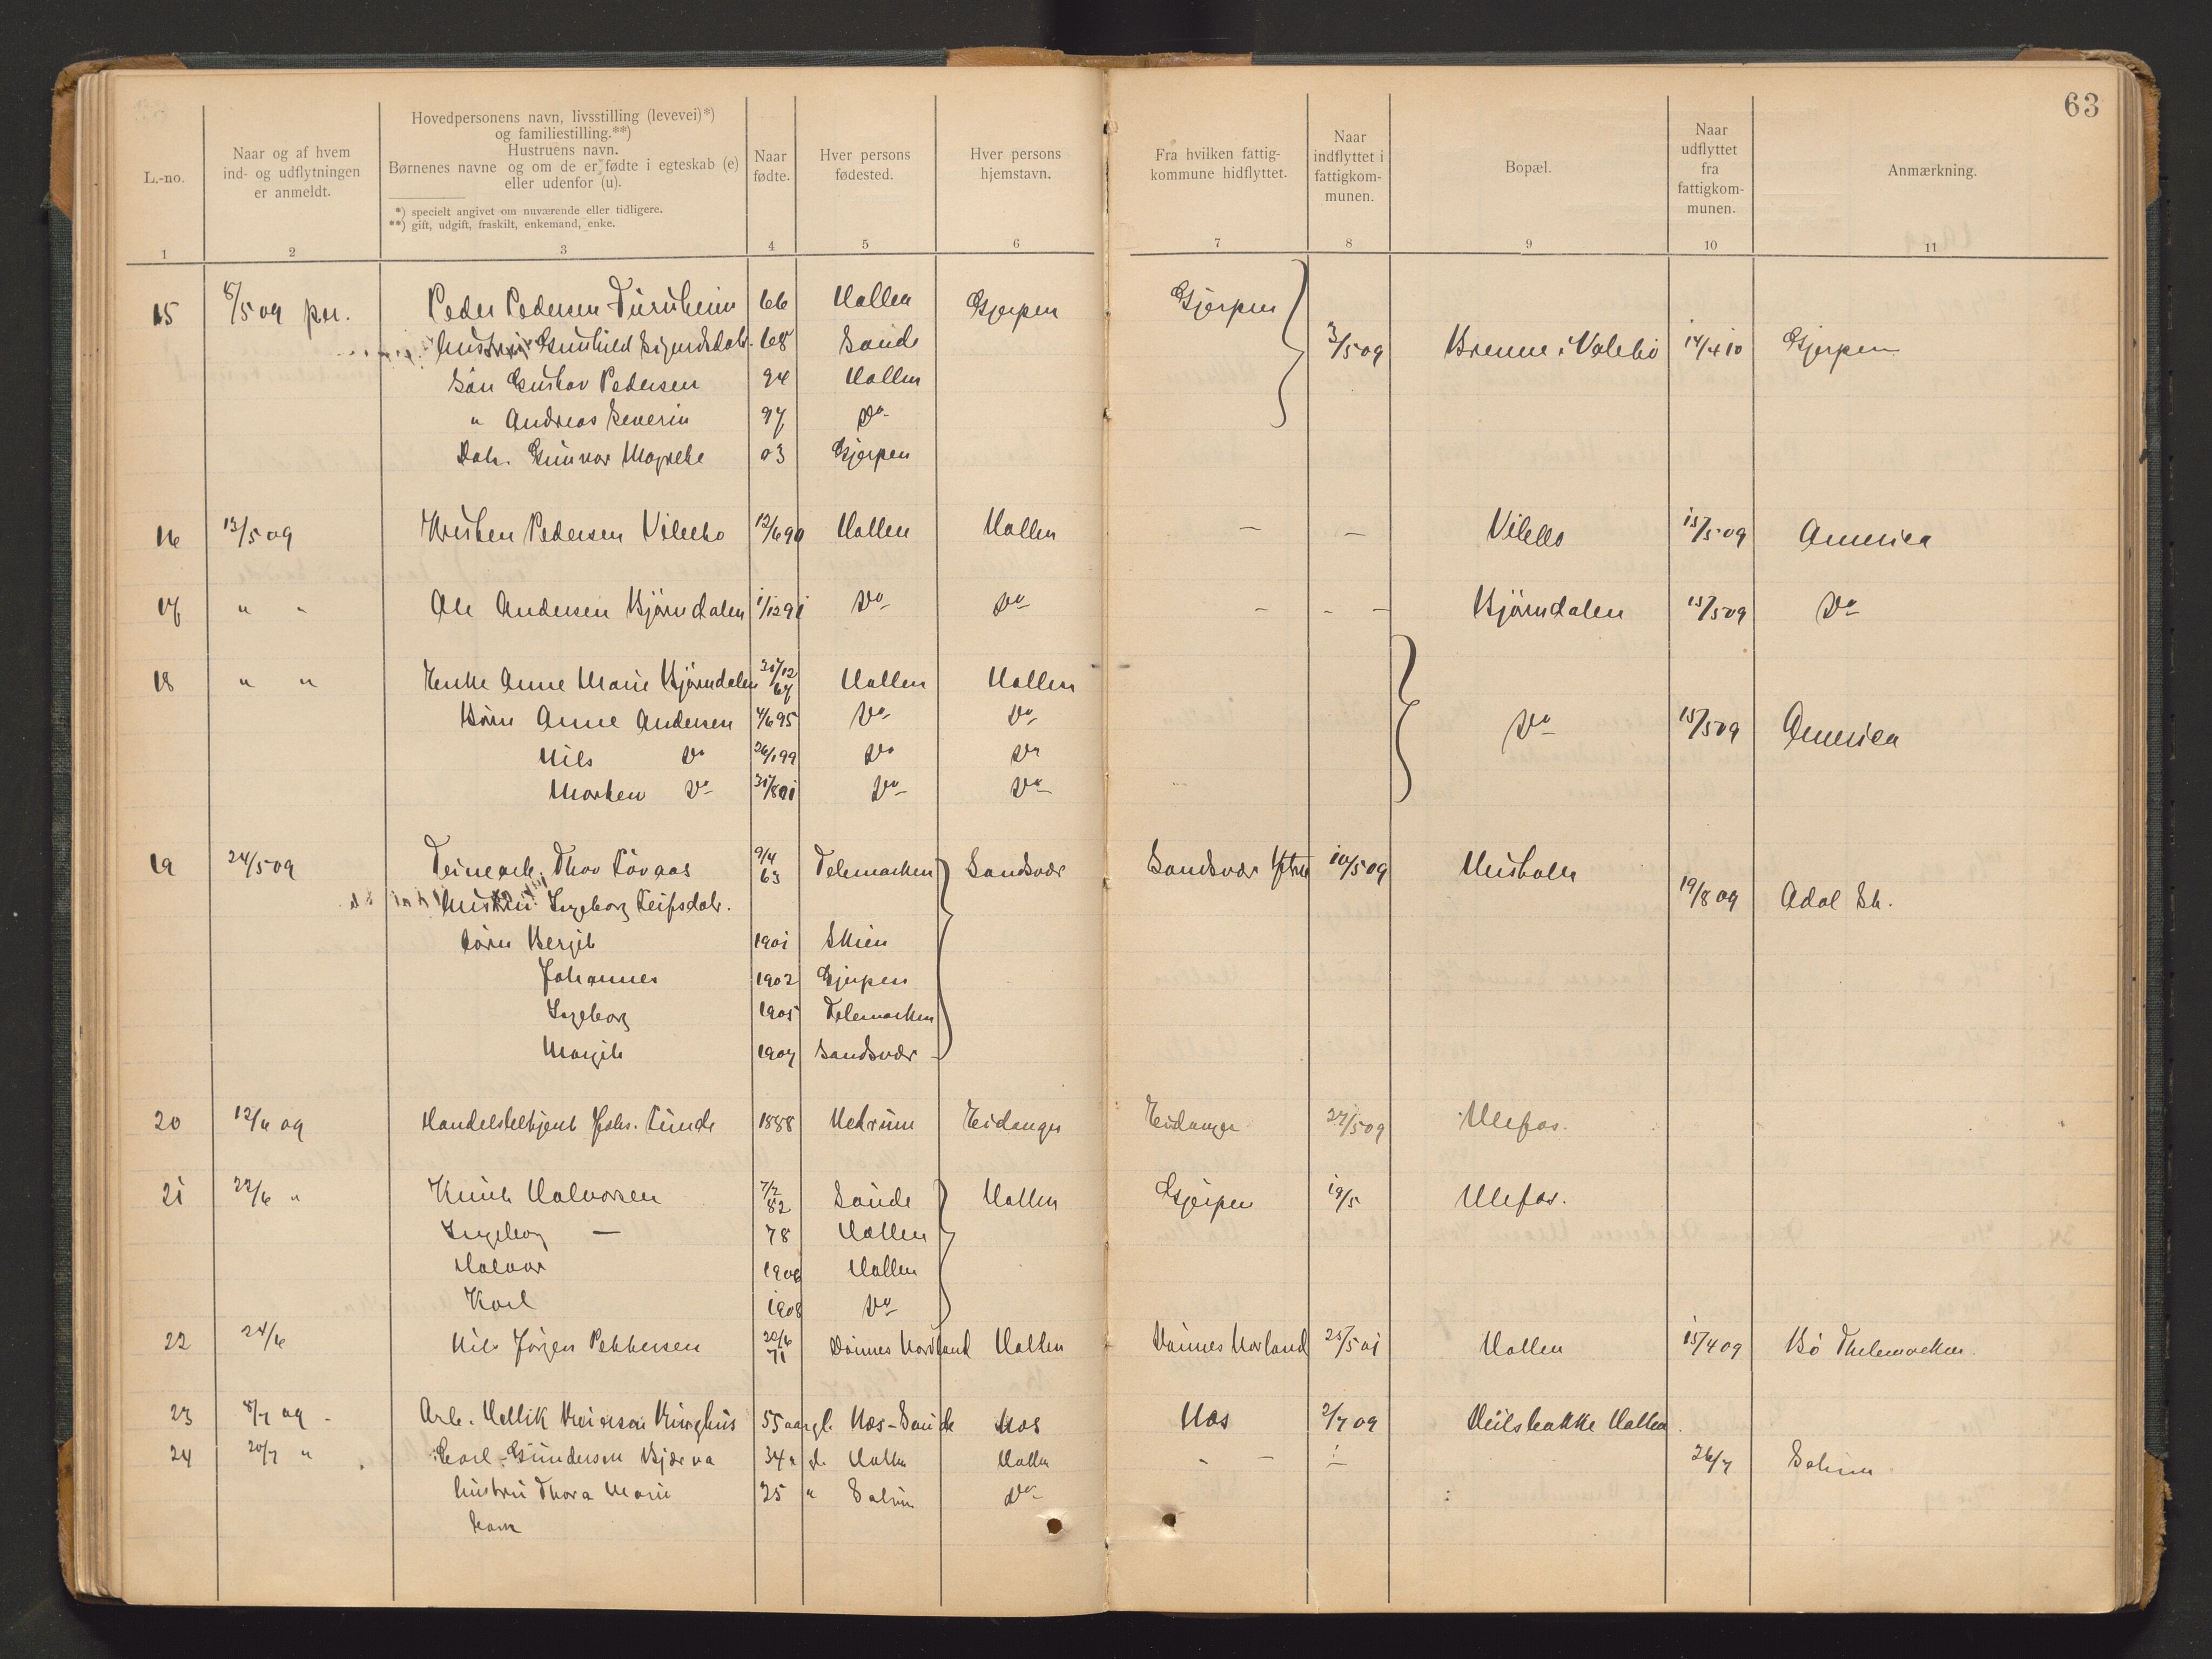 63
L.-no.
Naar og af hvem
ind- og udflytningen
er anmeldt.
Hovedpersonens navn, livsstilling (levevei)*)
og familiestilling.**)
Hustruens navn.
Børnenes navne og om de er fødte i egteskab (e)
eller udenfor (u).
*) specielt angivet om nuværende eller tidligere.
**) gift, ugift, fraskilt, enkemand, enke.
Naar
fødte.
Hver persons
fødested.
Hver persons
hjemstavn.
Fra hvilken fattig-
kommune hidflyttet.
Naar
indflyttet i
fattigkom-
munen.
Bopæl.
Naar
udflyttet
fra
fattigkom-
munen.
Anmærkning.
1 2 3 4 5 6 7 8 9 10 11
15 8/5 09 per. Peder Pedersen 66 Hollen Gjerpen Gjerpen
Hustru Gunhild Sigurdsdatr. 68 Saude 3/5 09 Brenne i Valebø 14/4 10 Gjerpen
Søn Gustav Pedersen 94 Hollen
" Andreas Severin 97 Do
Datr. Gunvor Margrethe 03 Gjerpen
16 13/5 09 Kristen Pedersen Vibeto 12/6 90 Hollen Hollen — — 15/5 09 America
17 " " Ole Andersen Bjørndalen 1/12 91 Do Do - - - Bjørndalen 15/5 09 Do
18 " " Enke Anne Marie Bjørndalen 31/12 67 Hollen Hollen
Børn Anne Andersen 4/6 95 Do Do Do 15/5 09 America
Nils Do 26/1 99 Do Do
Morten Do 31/8 01 Do Do
19 24/5 09 Thov 9/4 63 Telemarken Sandsvær Sandsvær 10/5 09
Hustru Ingeborg Leifsdatr. 19/8 09 Adal
børn Bergit 1901 Skien
Johannes 1902 Gjerpen
Ingeborg 1905 Telemarken
Margit 1907 Sandsvær
20 12/6 09 Handelsbetjent Johs. Lunde 1888 Hedrum Eidanger Eidanger 27/5 09 Ulefos.
21 22/6 " Knut Halvorsen 7/2 82 Saude Hollen Gjerpen 19/5 Ulefos.
Ingeborg — 78 Hollen
Halvor 1906 Hollen
Karl 1908 Do
22 24/6 Nils Jørgen Pettersen 20/6 71 Dønnes Nordland Hollen Dønnes Norland 25/5 01 Hollen 15/4 09 Bø Thelemarken
23 8/7 09 Arb. 55 aar gl. Næs-Saude Næs Næs 2/7 09 Hollen
24 20/7 " Carl Gundersen 34 a gl. Hollen Hollen - - - 26/7 Solum
hustru Thora Marie 25 " Solum Do
barn